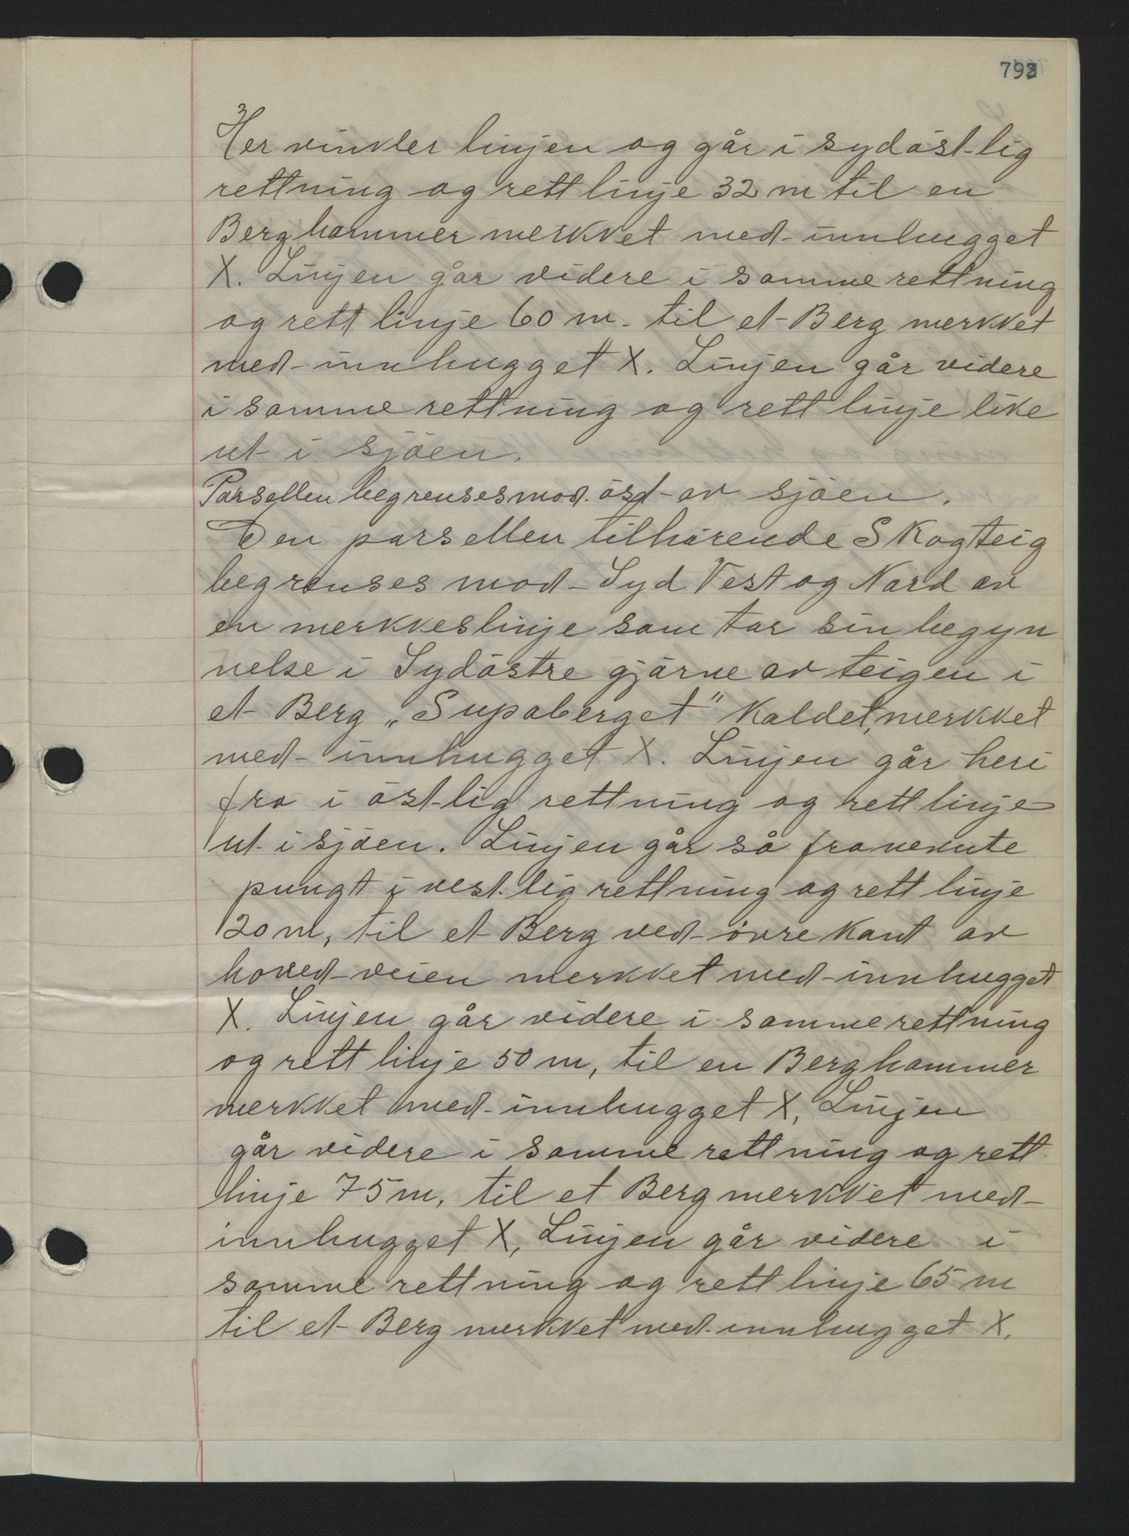 793
3
Her vinkler linjen og går i sydöst-lig
rettning og rett linje 32 m til en
Berghammer merkket med innhugget
X. Linjen går videre i samme rettning
og rett linje 60 m. til et Berg merkket
med innhugget X. Linjen går videre
i samme rettning og rett linje like
ut i sjöen.
Parsellen begrenses mod. öst av sjöen.
Den parsellen tilhörende Skogteig
begrenses mod Syd Vest og Nord av
en merkkeslinje som tar sin begyn
nelse i Sydöstre gjörne av teigen i
et Berg „Supaberget" Kaldet, merkket
med innhugget X. Linjen går heri
fra i öst-lig rettning og rett linje
ut i sjöen. Linjen går så fra nevnte
pungt i vest lig rettning og rett linje
20 m, til et Berg ved övre Kant av
hoved-veien merkket med innhugget
X. Linjen går videre i samme rettning
og rett linje 50 m, til en Berghammer
merkket med innhugget X, Linjen
går videre i samme rettning og rett
linje 75 m, til et Berg merkket med
innhugget X, Linjen går videre i
samme rettning og rett linje 65 m
til et Berg merkket med innhugget X.